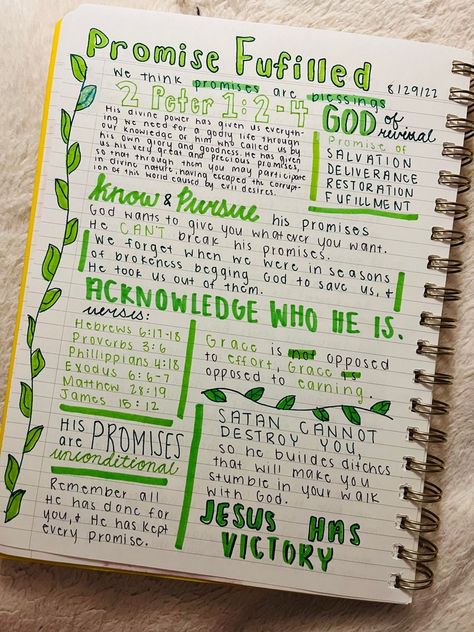 Promise Fufilled
8/29/22
We think promises are blessings
2 Peter 1:2-4
His divine power has given us everyth-
ing we need for a godly life through
our knowledge of him who called us by
his own glory and goodness. He has given
us his very great and precious promises,
so that through them you may participate
in divine nature, having escaped the corrupt-
ion of this world caused by evil desires.
GOD of
revival
Promise of
SALVATION
DELIVERANCE
RESTORATION
FUFILLMENT
Know & Pursue his promises
God wants to give you whatever you want.
He CAN'T break his promises.
We forget when we were in seasons
of brokeness begging God to save us, &
He took us out of them.
ACKNOWLEDGE WHO HE IS.
verses:
Hebrews 6:17-18
Proverbs 3:6
Phillippians 4:18
Exodus 6:6-7
Matthew 28:19
James 15:12
Grace is not opposed
to effort, Grace is
opposed to earning.
HIS
are PROMISES
unconditional
Remember all
He has done for
you, & He has kept
every promise.
SATAN CANNOT
DESTROY YOU,
so he buildes ditches
that will make you
stumble in your walk
with God.
JESUS HAS
VICTORY